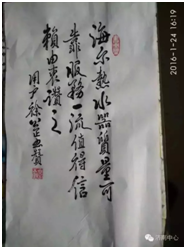 海尔热水器质量可
靠服务一流值得信
赖由衷赞之
用户徐
2016-1-24 16:19
济南中心